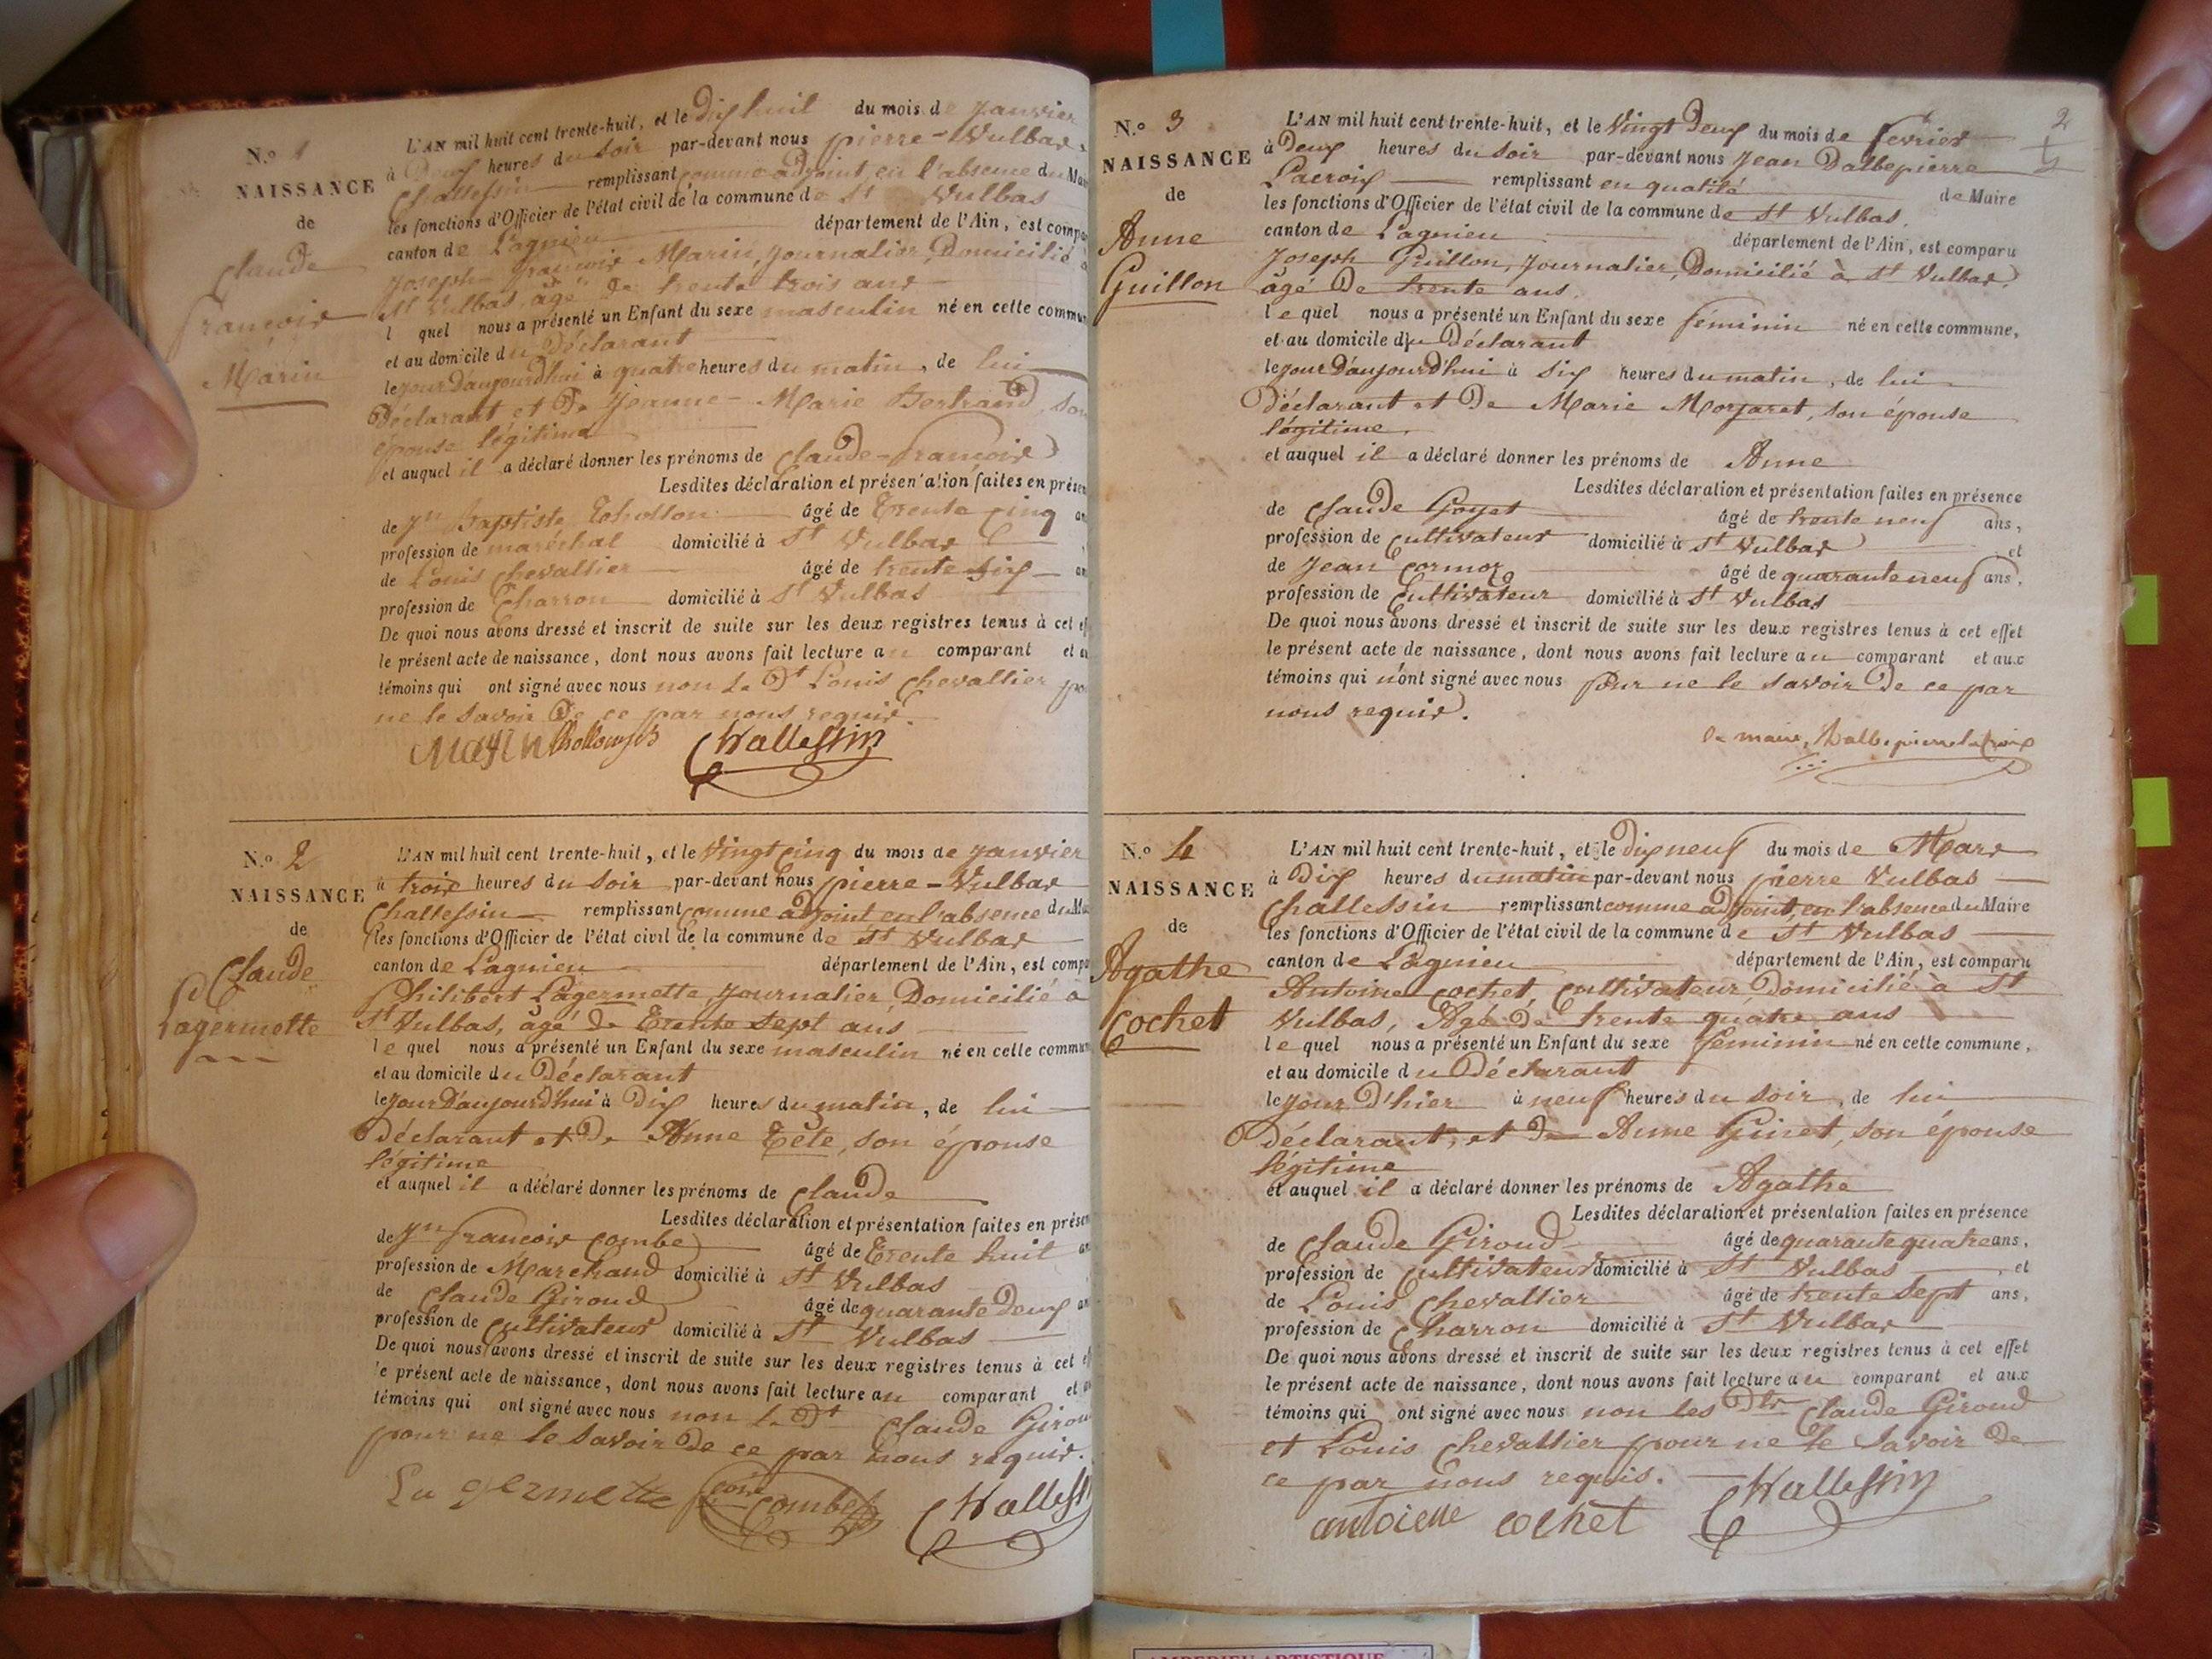 N.o 1
NAISSANCE
de
Claude
françois
Marin
L'AN mil huit cent trente-huit, et le Dix huit du mois de Janvier
à Deux heures du soir par-devant nous pierre-Vulbas
Challessin remplissant comme adjoint en l'absence du Mai
les fonctions d'Officier de l'état civil de la commune de St Vulbas
canton de Lagnieu département de l'Ain, est compa
Joseph françois Marin, Journalier, Domicilié à
St Vulbas, âgé de trente trois ans
l quel nous a présenté un Enfant du sexe masculin né en cette commun
et au domicile du Déclarant
le jour D'aujourd'hui à quatre heures du matin, de lui
Déclarant et De Jeanne-Marie Bertrand, son
épouse légitime
et auquel il a déclaré donner les prénoms de Claude-françois
Lesdites déclaration et présentation faites en présen
de Jn Baptiste Thollon âgé de Trente Cinq an
profession de maréchal domicilié à St Vulbas
de Louis Chevallier âgé de trente six an
profession de Charron domicilié à St Vulbas
De quoi nous avons dressé et inscrit de suite sur les deux registres tenus à cet ef
le présent acte de naissance, dont nous avons fait lecture au comparant et au
témoins qui ont signé avec nous non le Dt Louis Chevallier po
ne le savoir De ce par nous requis.
Marin Thollon JB Challessin
N.o 2
NAISSANCE
de
Claude
Lagermette
L'AN mil huit cent trente-huit, et le Vingt Cinq du mois de Janvier
à trois heures du soir par-devant nous pierre-Vulbas
Challessin remplissant comme adjoint en l'absence du Mai
les fonctions d'Officier de l'état civil de la commune de St Vulbas
canton de Lagnieu département de l'Ain, est compa
Philibert Lagermette, Journalier, Domicilié à
St Vulbas, âgé de Trente sept ans
le quel nous a présenté un Enfant du sexe masculin né en cette commun
et au domicile du Déclarant
le jour D'aujourd'hui à Dix heures du matin, de lui
déclarant et De Anne Tête, son épouse
légitime
et auquel il a déclaré donner les prénoms de Claude
Lesdites déclaration et présentation faites en présen
de Jn françois Combe âgé de Trente huit an
profession de Marchand domicilié à St Vulbas
de Claude Giroud âgé de quarante Deux an
profession de Cultivateur domicilié à St Vulbas
De quoi nous avons dressé et inscrit de suite sur les deux registres tenus à cet ef
le présent acte de naissance, dont nous avons fait lecture au comparant et au
témoins qui ont signé avec nous non le Dt Claude Girou
pour ne le savoir De ce par nous requis.
La germette Combe Challess
2
N.o 3
NAISSANCE
de
Anne
Guillon
L'AN mil huit cent trente-huit, et le Vingt Deux du mois de fevrier
à Deux heures du soir par-devant nous Jean Dalbepierre
Lacroix remplissant en qualité de Maire
les fonctions d'Officier de l'état civil de la commune de St Vulbas
canton de Lagnieu département de l'Ain, est comparu
Joseph Guillon, Journalier, Domicilié à St Vulbas,
âgé De trente ans.
le quel nous a présenté un Enfant du sexe féminin né en cette commune,
et au domicile du Déclarant
le jour D'aujourd'hui à Six heures du matin, de lui
Déclarant et De Marie Morjaret, son épouse
légitime.
et auquel il a déclaré donner les prénoms de Anne
Lesdites déclaration et présentation faites en présence
de Claude Goyet âgé de trente neuf ans,
profession de Cultivateur domicilié à St Vulbas et
de Jean Cormoz âgé de quarante neuf ans,
profession de Cultivateur domicilié à St Vulbas
De quoi nous avons dressé et inscrit de suite sur les deux registres tenus à cet effet
le présent acte de naissance, dont nous avons fait lecture au comparant et aux
témoins qui n'ont signé avec nous pour ne le savoir De ce par
nous requis.
Le maire, Dalbepierre lacroix
N.o 4
NAISSANCE
de
Agathe
Cochet
L'AN mil huit cent trente-huit, et le dix neuf du mois de Mars
à Dix heures du matin par-devant nous pierre Vulbas
Challessin remplissant comme adjoint, en l'absence du Maire
les fonctions d'Officier de l'état civil de la commune de St Vulbas
canton de Lagnieu département de l'Ain, est comparu
Antoine Cochet, Cultivateur, Domicilié à St
Vulbas, Agé De trente quatre ans
le quel nous a présenté un Enfant du sexe féminin né en cette commune,
et au domicile du Déclarant
le jour D'hier à neuf heures du soir, de lui
Déclarant, et De Anne Ginet, son épouse
légitime
et auquel il a déclaré donner les prénoms de Agathe
Lesdites déclaration et présentation faites en présence
de Claude Giroud âgé de quarante quatre ans,
profession de Cultivateur domicilié à St Vulbas, et
de Louis Chevallier âgé de trente Sept ans,
profession de Charron domicilié à St Vulbas
De quoi nous avons dressé et inscrit de suite sur les deux registres tenus à cet effet
le présent acte de naissance, dont nous avons fait lecture au comparant et aux
témoins qui ont signé avec nous non les Dts Claude Giroud
et Louis Chevallier pour ne le Savoir De
ce par nous requis. Challessin
antoine cochet
AMPERIEU ARTISTIQUE